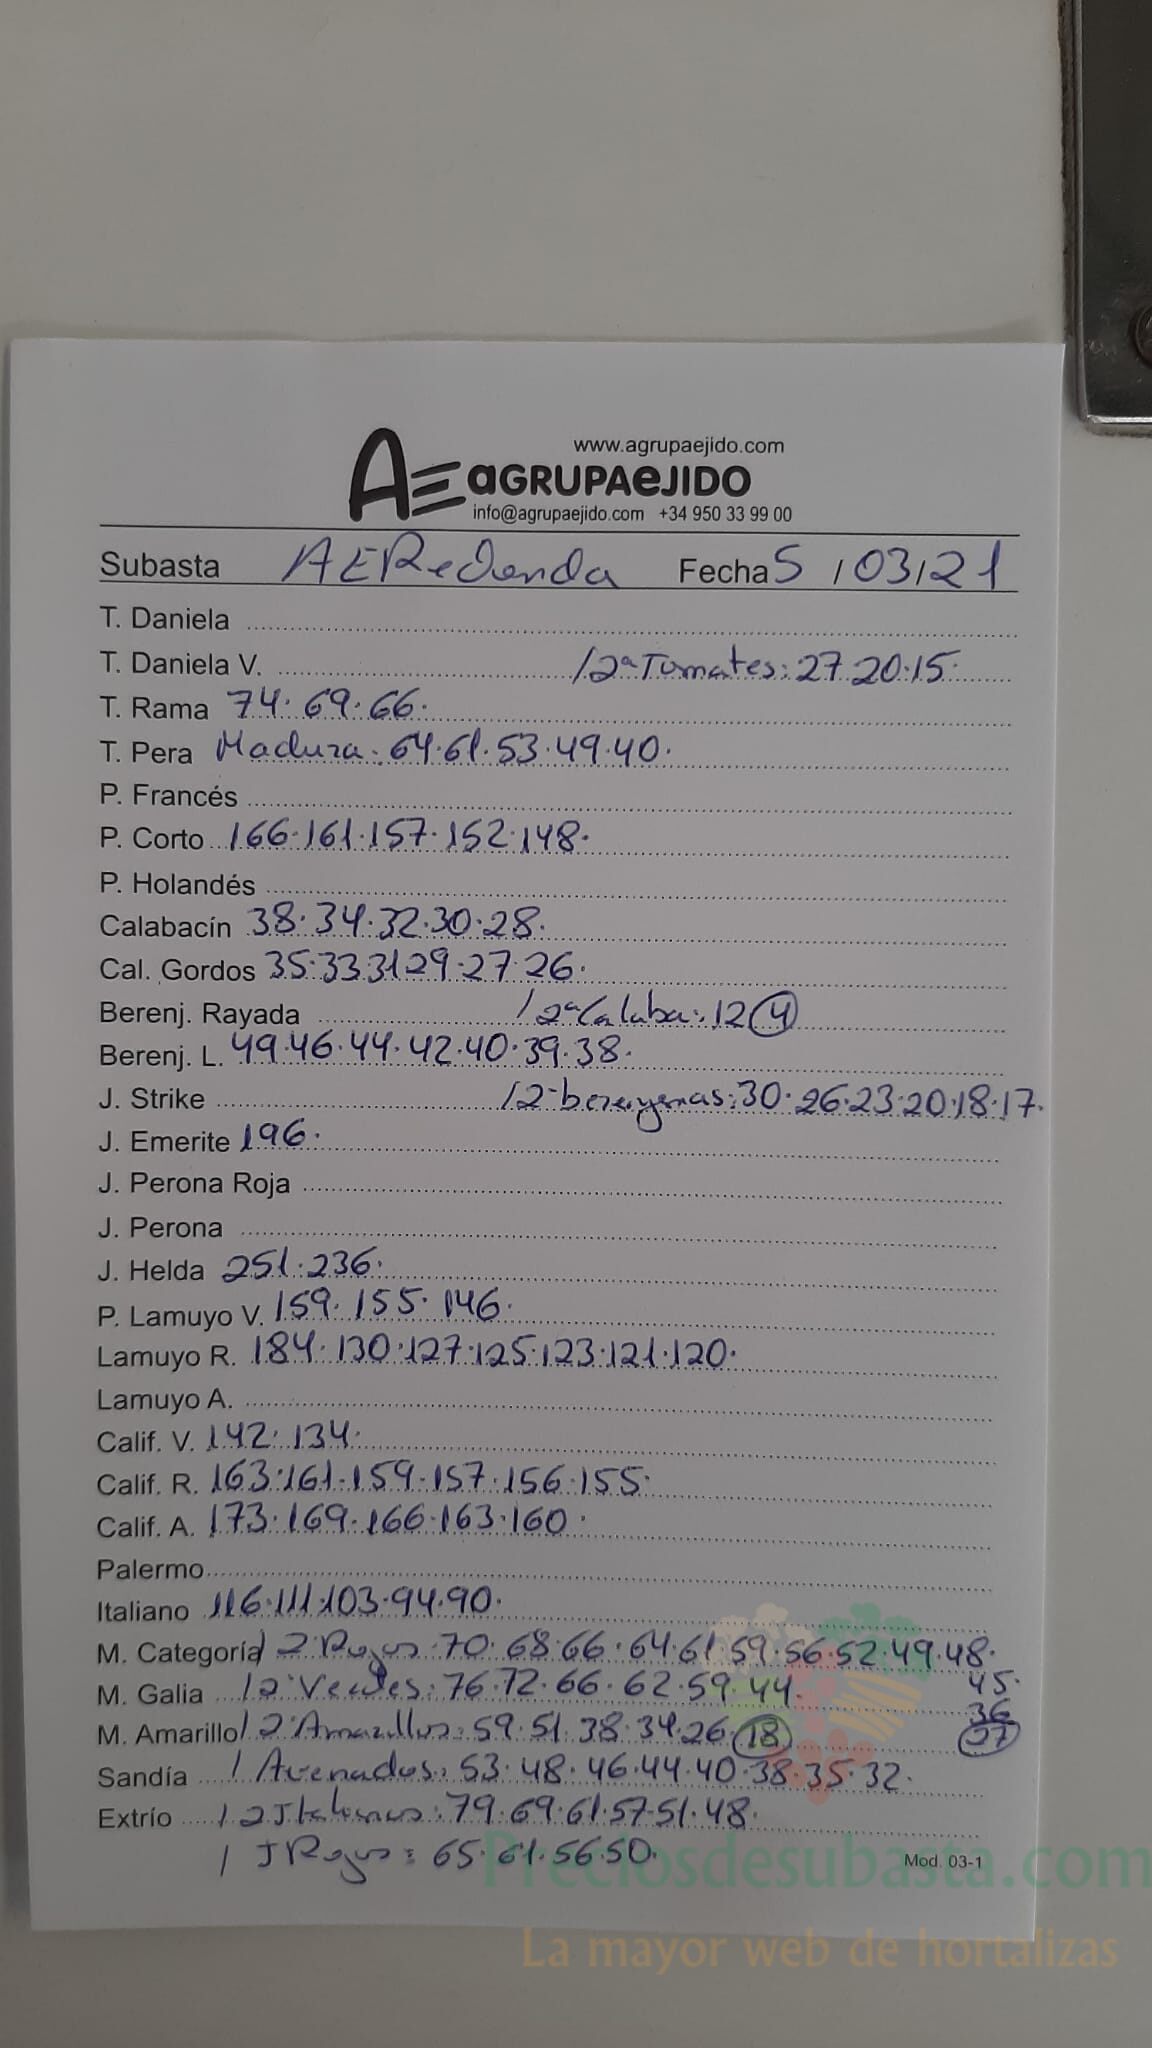 www.agrupaejido.com
AE aGRUPAeJIDO
info@agrupaejido.com +34 950 33 99 00
Subasta AERedonda Fecha 5 / 03 / 21
T. Daniela
T. Daniela V. / 2ª Tomates: 27 20 15
T. Rama 74. 69. 66.
T. Pera Madura: 64. 61. 53. 49. 40.
P. Francés
P. Corto 166. 161. 157. 152. 148.
P. Holandés
Calabacín 38. 34. 32. 30. 28.
Cal. Gordos 35. 33 31 29. 27. 26.
Berenj. Rayada / 2ª Calaba: 12 4
Berenj. L. 49. 46. 44. 42. 40. 39. 38.
J. Strike / 2ª berenjenas: 30. 26. 23. 20. 18. 17.
J. Emerite 196.
J. Perona Roja
J. Perona
J. Helda 251. 236.
P. Lamuyo V. 159. 155. 146.
Lamuyo R. 184. 130. 127. 125. 123. 121. 120.
Lamuyo A.
Calif. V. 142. 134.
Calif. R. 163. 161. 159. 157. 156. 155.
Calif. A. 173. 169. 166. 163. 160.
Palermo
Italiano 116. 111. 103. 94. 90.
M. Categoría / 2ª Rojos. 70. 68. 66. 64. 61. 59. 56. 52. 49. 48.
M. Galia / 2ª Verdes: 76. 72. 66. 62. 59. 44. 45.
36
M. Amarillo / 2ª Amarillos: 59. 51. 38. 34. 26. 18 27
Sandía / Asenados: 53. 48. 46. 44. 40. 38. 35. 32.
Extrío / 2 Italianos: 79. 69. 61. 57. 51. 48.
/ I Rojos: 65. 61. 56. 50.
Mod. 03-1
Preciosdesubasta.com
La mayor web de hortalizas